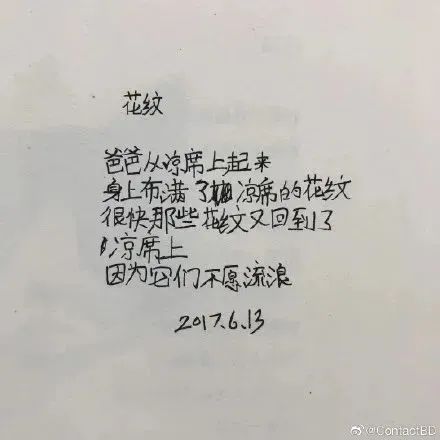 花纹
爸爸从凉席上起来
身上布满了凉席的花纹
很快那些花纹又回到了
凉席上
因为它们不愿流浪
2017.6.13
@ContactBD